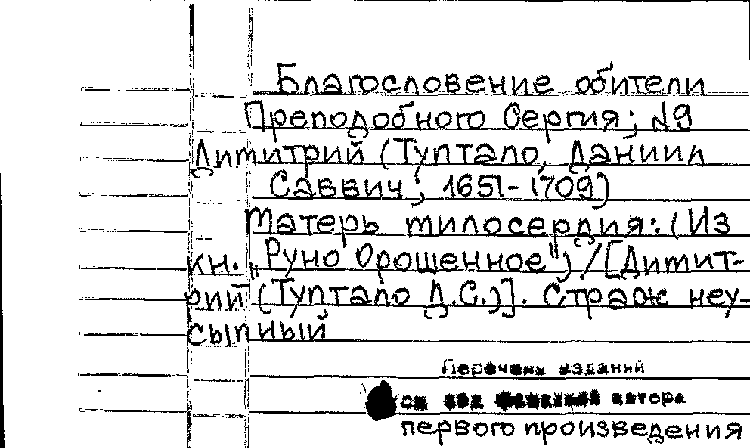 Благословение обители
Преподобного Сергия; №9
Димитрий (Туптало, Даниил
Саввич; 1651-1709)
Матерь милосердия: (Из
кн. „Руно Орошенное") / [Димит-
рий (Туптало Д.С.)]. Страж неу-
сыпный
Перечень изданий
см под фамилией автора
первого произведения